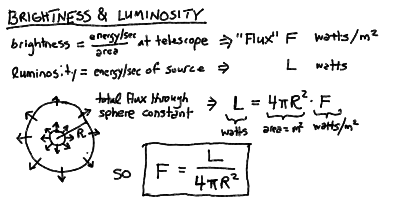 BRIGHTNESS & LUMINOSITY
brightness = energy/sec / area at telescope ⇒ "Flux" F watts/m²
luminosity = energy/sec of source ⇒ L watts
total flux through sphere constant ⇒ L = 4πR² · F
watts area=m² watts/m²
R
so F = L / 4πR²